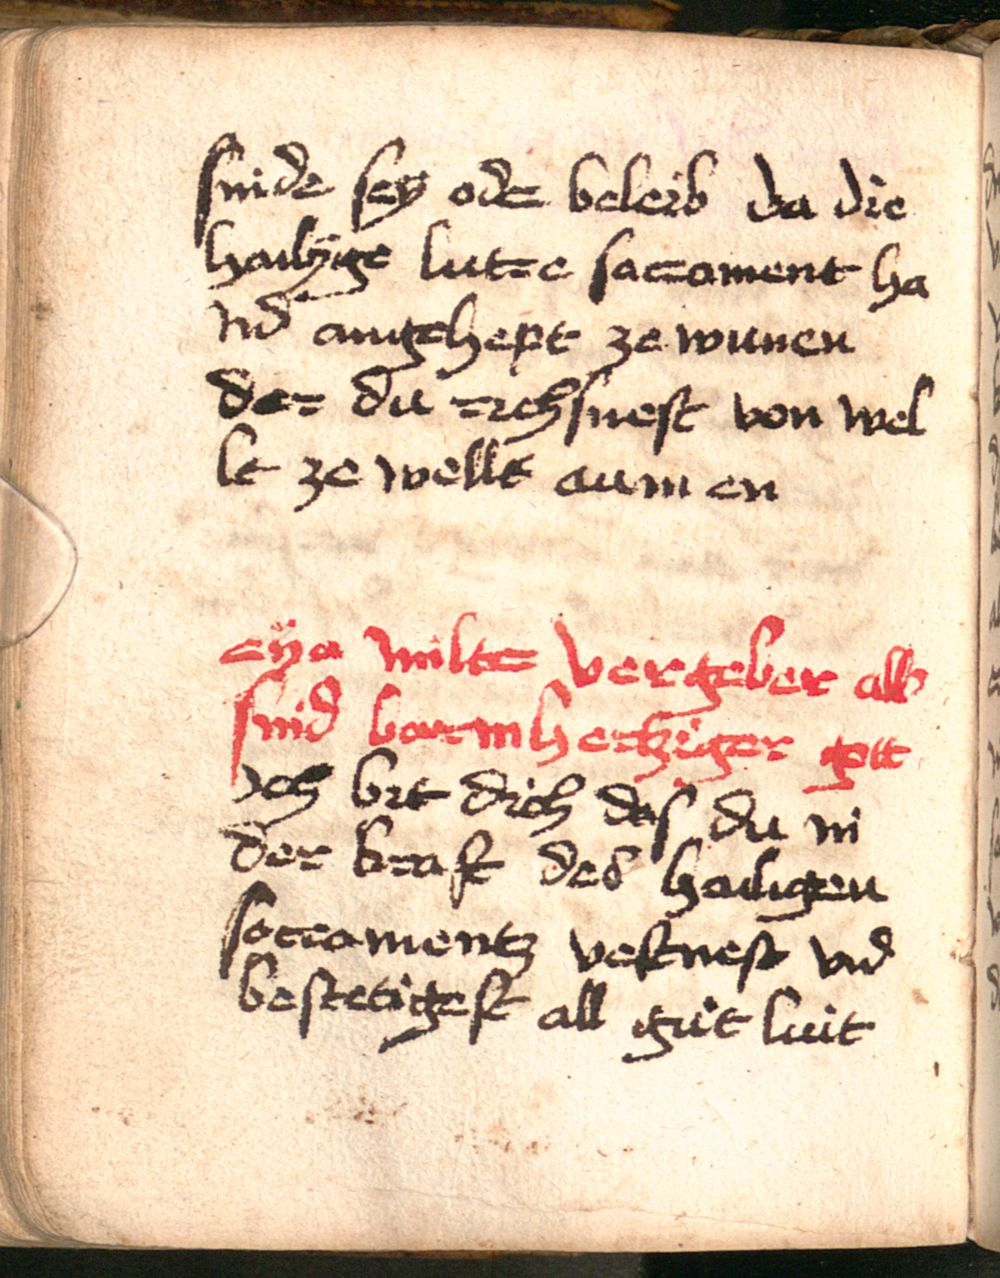 sinde sey ode beleib da die
hailyge luter sacrament ha
nd angehept ze wunen
der du richsnest von wel
lt ze wellt aumen
eÿa milte vergeber all
sind barmhertziger gott
Ich bit dich das du in
der kraft des hailigen
sacramentz vestnest vnd
bestetigest all gůt luit